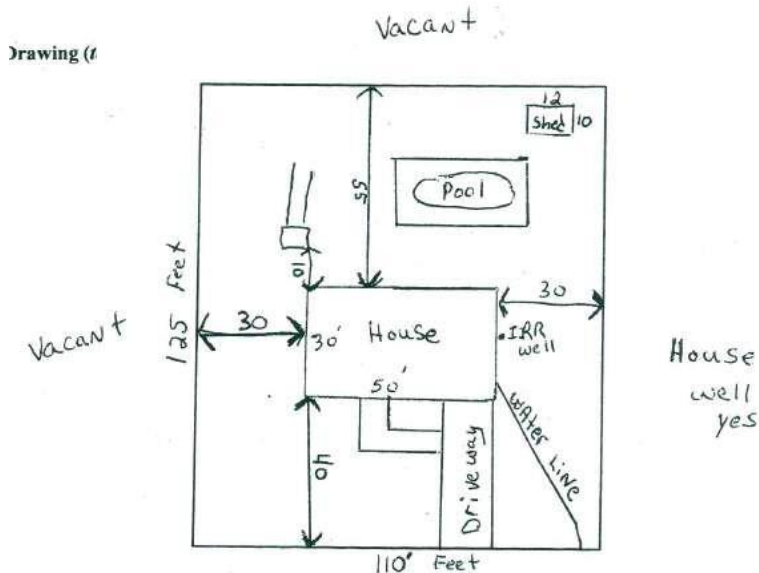 Vacant
Drawing (t
12
Shed 10
Pool
55
10
125 Feet
Vacant
30
30'
House
50'
30
.IRR
well
House
well
yes
40
Driveway
Water Line
110' Feet